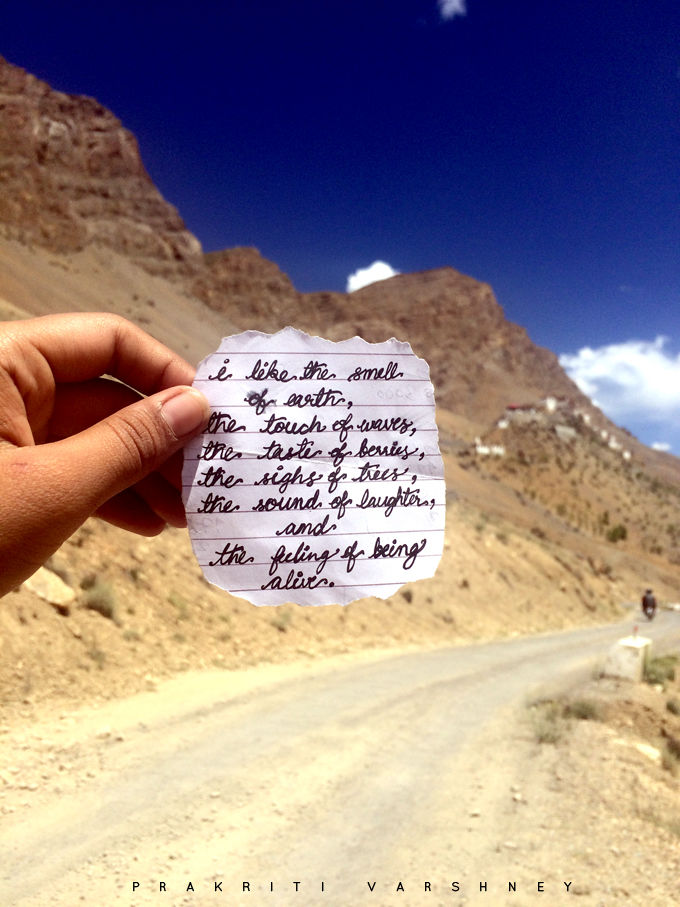 i like the smell
of earth,
the touch of waves,
the taste of berries,
the sighs of trees,
the sound of laughter,
and
the feeling of being
alive.
PRAKRITI VARSHNEY